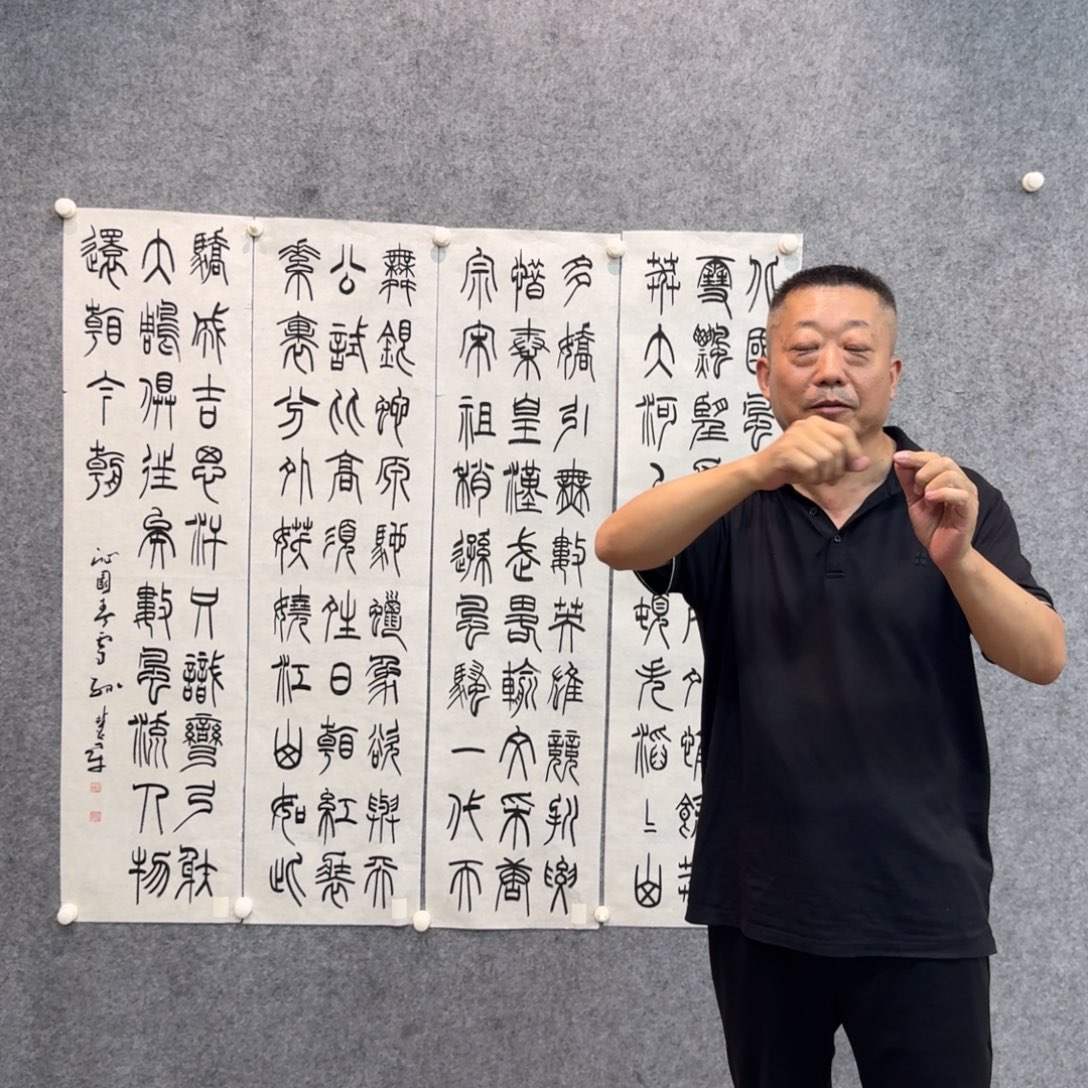 北國風
雪飄望外惟餘莽
莽大河頓失滔〻山
多嬌引無數英雄競折腰
惜秦皇漢武略輸文采唐
宗宋祖稍遜風騷一代天
舞銀蛇原馳蠟象欲與天
公試比高須晴日看紅裝
素裹分外妖嬈江山如此
驕成吉思汗只識彎弓射
大鵰俱往矣數風流人物
還看今朝
沁園春雪